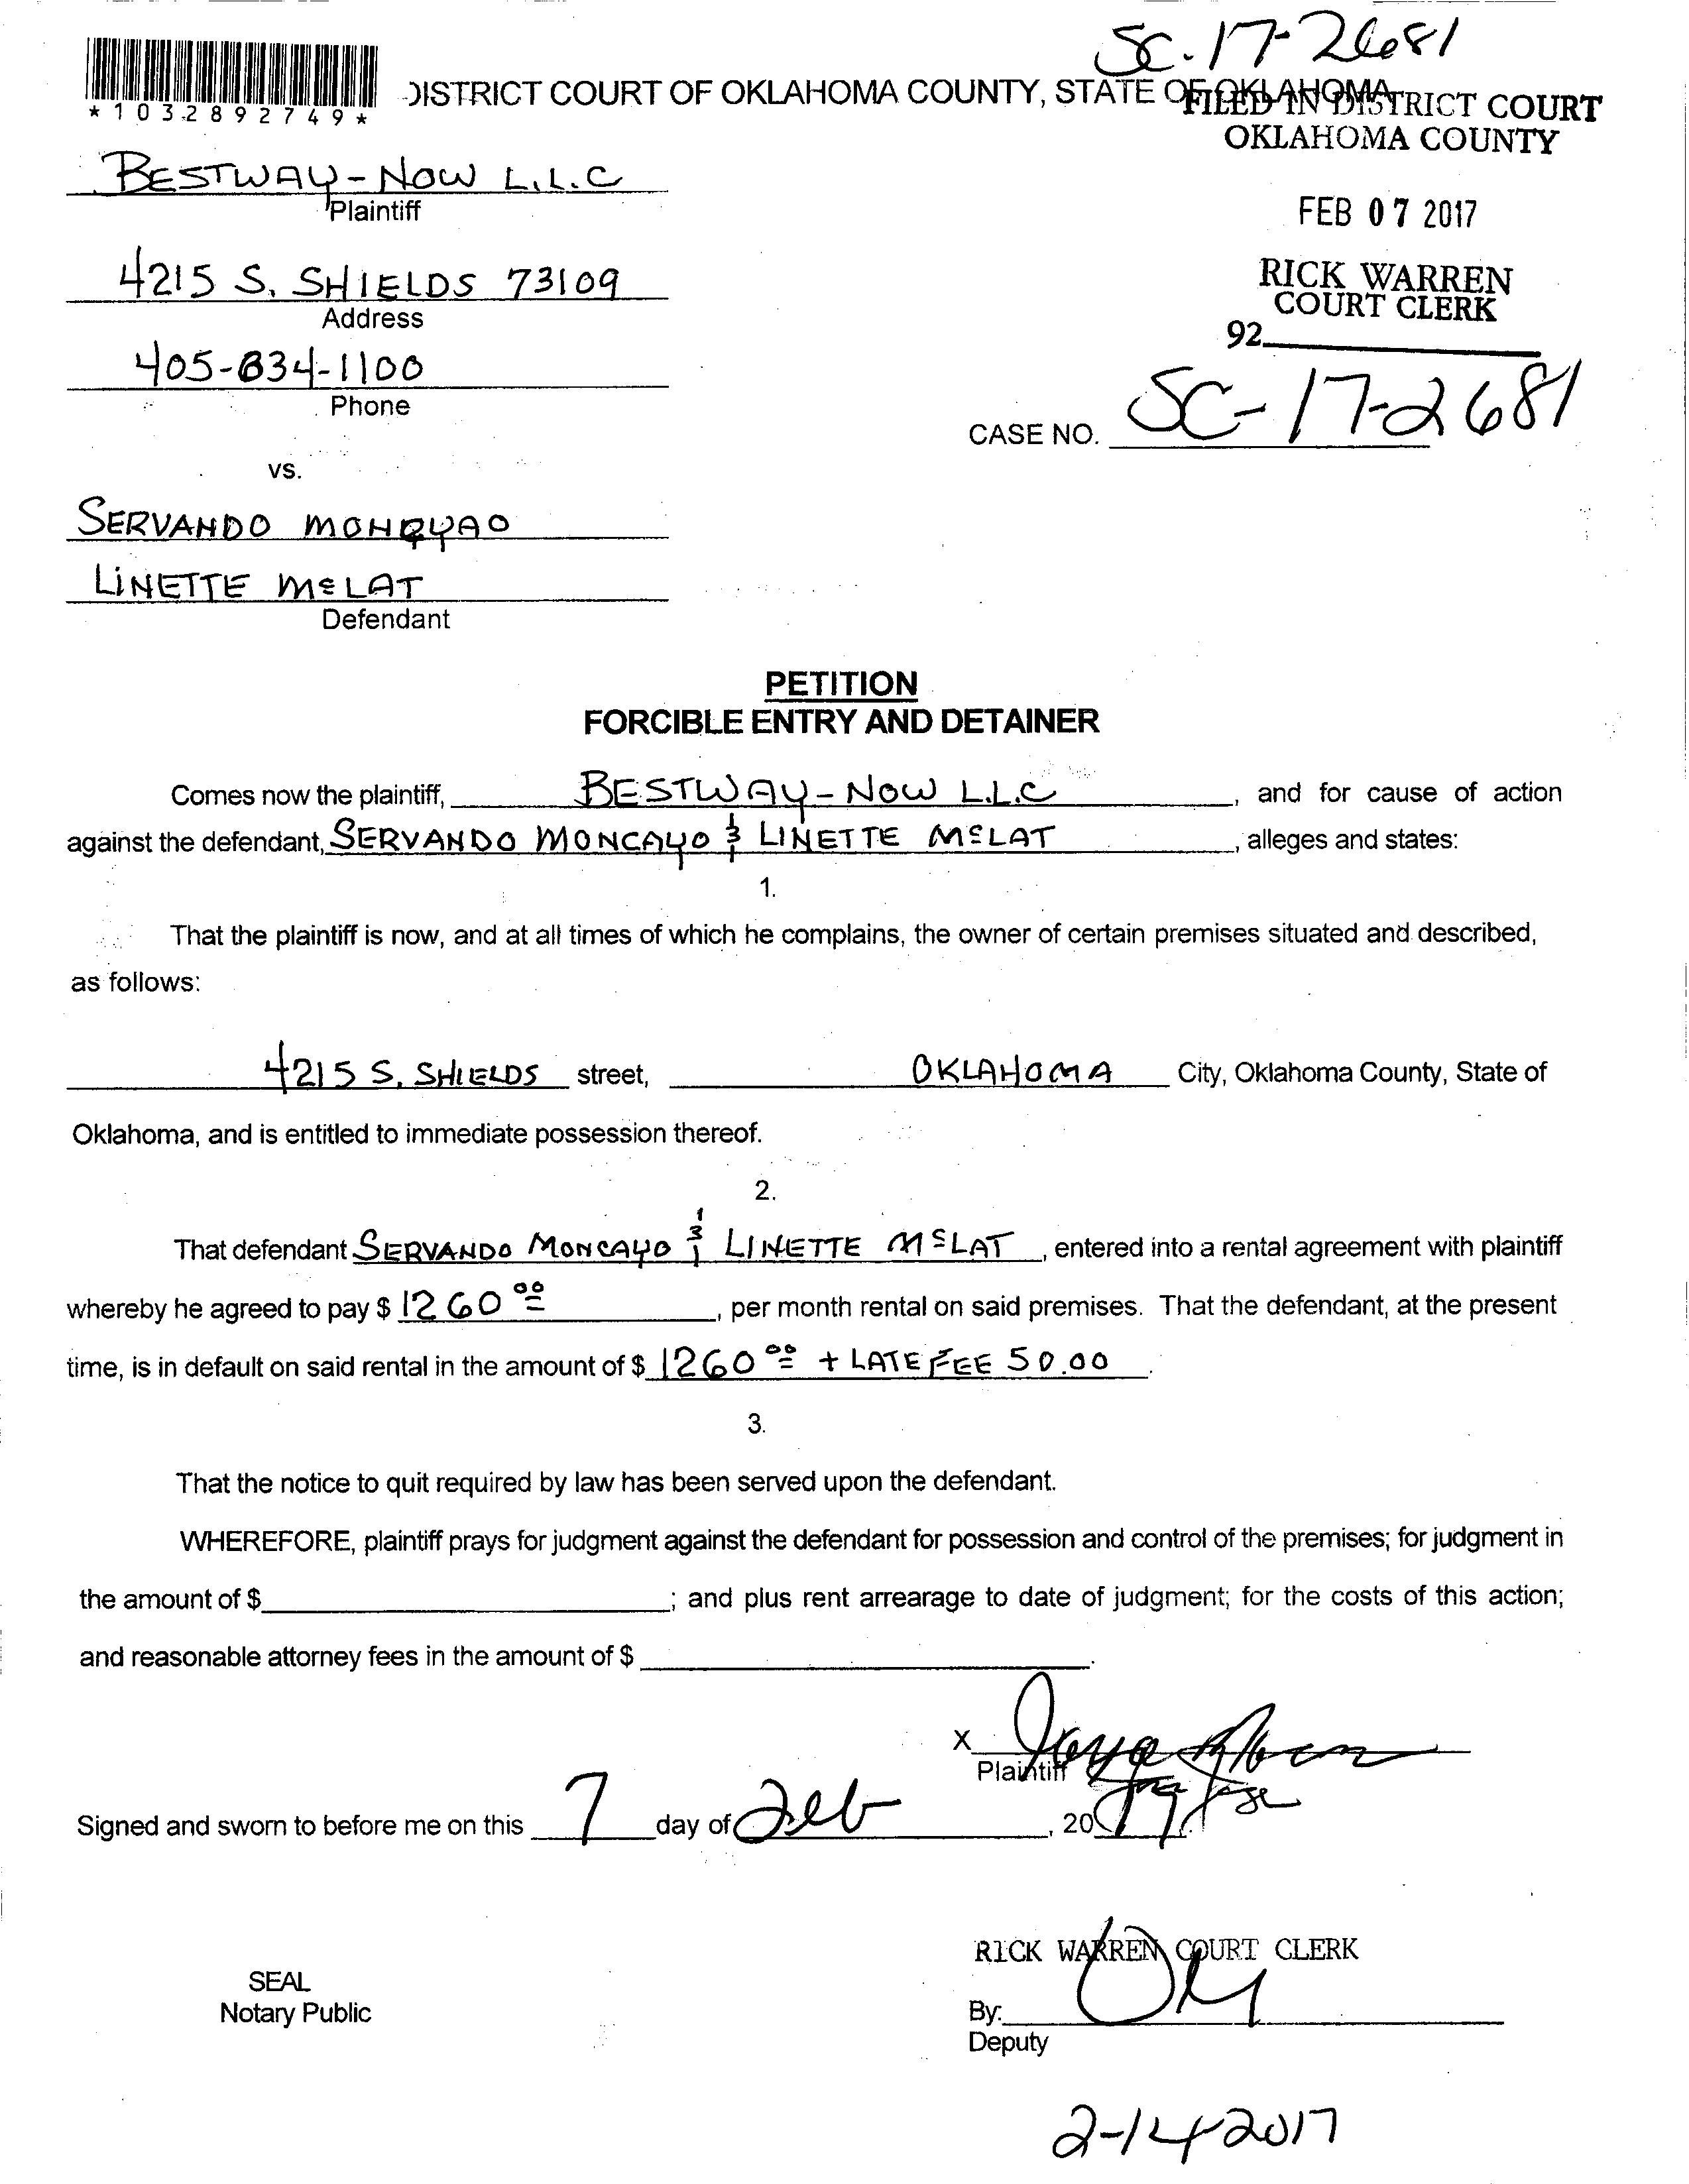 SC-17-2681
*1032892749*
DISTRICT COURT OF OKLAHOMA COUNTY, STATE OF OKLAHOMA
FILED IN DISTRICT COURT
OKLAHOMA COUNTY
BESTWAY-NOW L.L.C
Plaintiff
FEB 07 2017
4215 S. SHIELDS 73109
Address
RICK WARREN
COURT CLERK
92
405-834-1100
Phone
CASE NO. SC-17-2681
vs.
SERVANDO
LINETTE McLAT
Defendant
PETITION
FORCIBLE ENTRY AND DETAINER
Comes now the plaintiff, BESTWAY-NOW L.L.C, and for cause of action
against the defendant, SERVANDO MONCAYO & LINETTE McLAT, alleges and states:
1.
That the plaintiff is now, and at all times of which he complains, the owner of certain premises situated and described,
as follows:
4215 S. SHIELDS street, OKLAHOMA City, Oklahoma County, State of
Oklahoma, and is entitled to immediate possession thereof.
2.
That defendant SERVANDO MONCAYO & LINETTE McLAT, entered into a rental agreement with plaintiff
whereby he agreed to pay $ 1260 00, per month rental on said premises. That the defendant, at the present
time, is in default on said rental in the amount of $ 1260 00 + LATE FEE 50.00.
3.
That the notice to quit required by law has been served upon the defendant.
WHEREFORE, plaintiff prays for judgment against the defendant for possession and control of the premises; for judgment in
the amount of $; and plus rent arrearage to date of judgment; for the costs of this action;
and reasonable attorney fees in the amount of $.
X
Plaintiff
Signed and sworn to before me on this 7 day of Feb, 2017.
RICK WARREN COURT CLERK
SEAL
Notary Public
By:
Deputy
2-14-2017